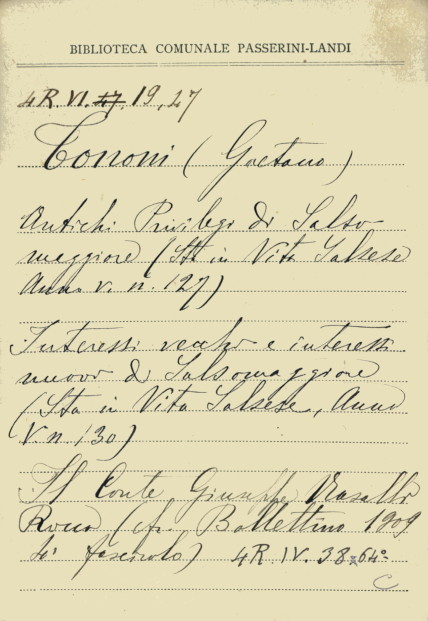 BIBLIOTECA COMUNALE PASSERINI-LANDI
4R. VI. 47. 19, 27
Tononi (Gaetano)
Antichi Privilegi di Salso
maggiore (Sta in Vita Salsese
Anno V. n. 127)
Interessi vecchi e interessi
nuovi di Salsomaggiore
(Sta in Vita Salsese, Anno
V. n. 130)
Il Conte Giuseppe
Rocca (cfr. Bollettino 1909
fascicolo) 4R IV. 38 64º
C